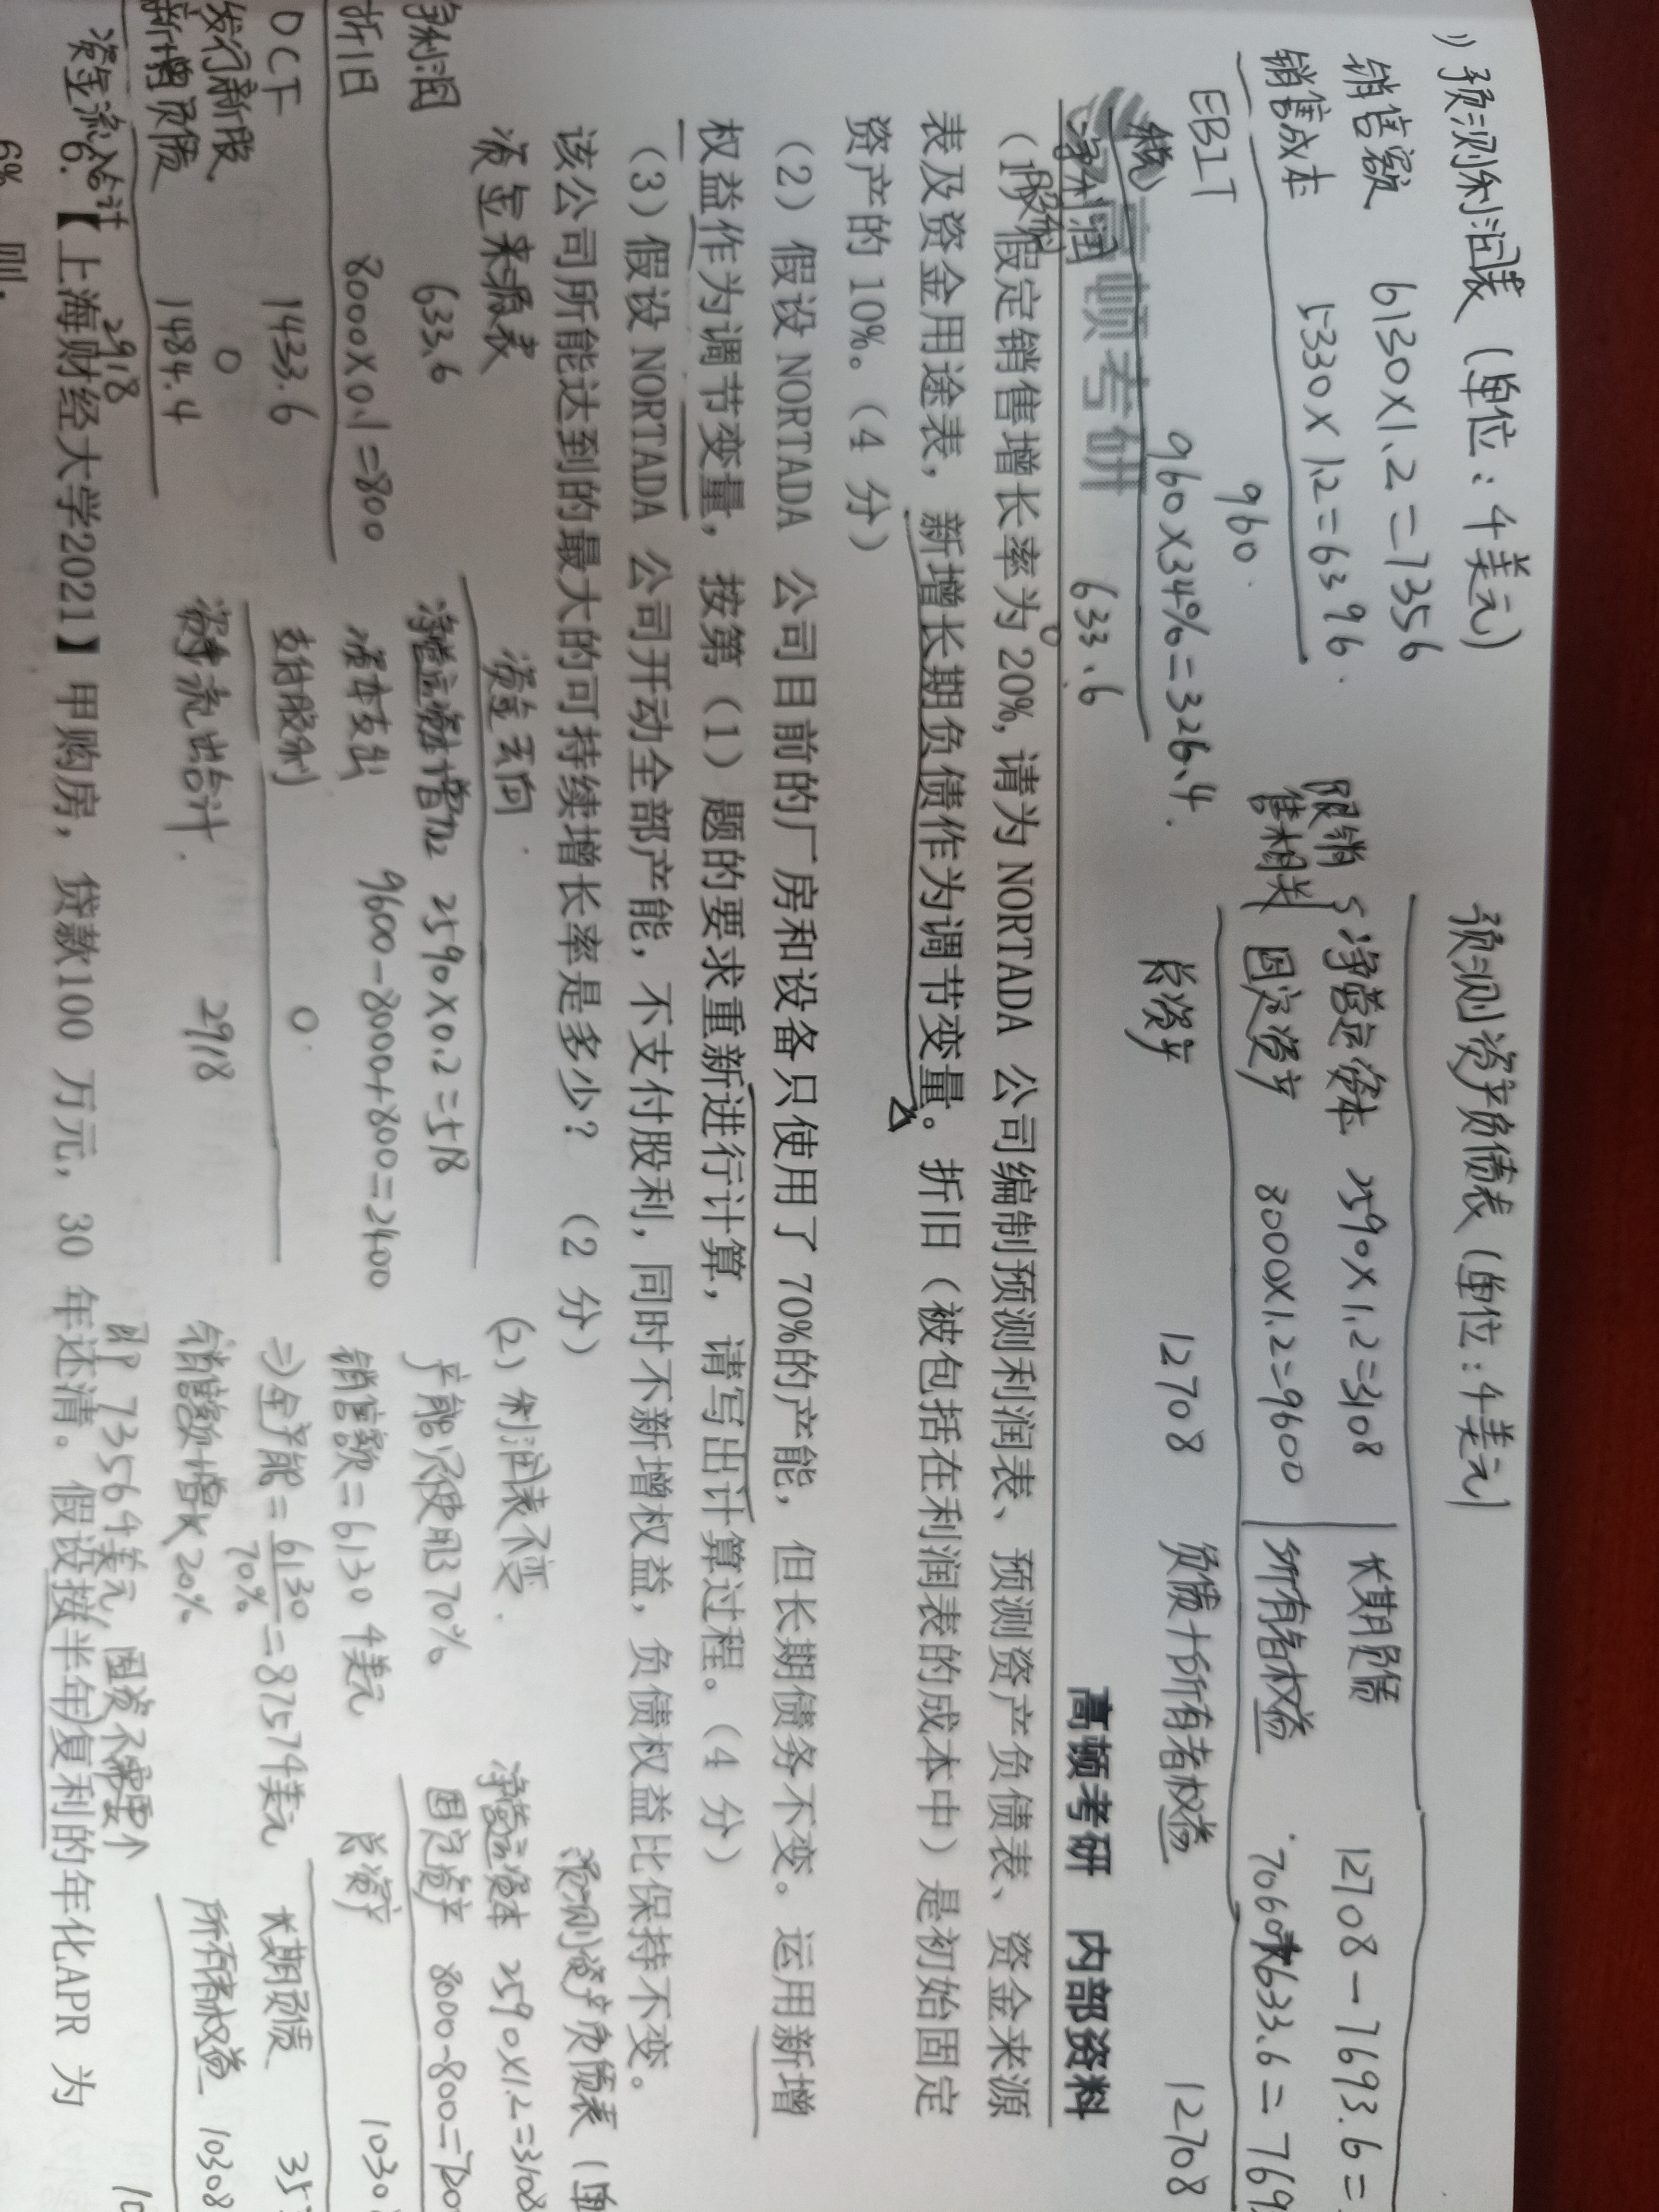 1) 预测利润表 (单位: 千美元)
销售额 6130×1.2=7356
销售成本 5330×1.2=6396
EBIT 960
税 960×34%=326.4
净利润 633.6
股利 0
预测资产负债表 (单位: 千美元)
跟销售相关
净营运资本 2590×1.2=3108
固定资产 8000×1.2=9600
总资产 12708
长期负债 12708-7693.6=
所有者权益 7060+633.6=769
负债+所有者权益 12708
高顿考研
高顿考研 内部资料
(1)假定销售增长率为 20%, 请为 NORTADA 公司编制预测利润表、预测资产负债表、资金来源
表及资金用途表, 新增长期负债作为调节变量。折旧(被包括在利润表的成本中)是初始固定
资产的 10%。(4 分)
(2)假设 NORTADA 公司目前的厂房和设备只使用了 70%的产能, 但长期债务不变。运用新增
权益作为调节变量, 按第(1)题的要求重新进行计算, 请写出计算过程。(4 分)
(3)假设 NORTADA 公司开动全部产能, 不支付股利, 同时不新增权益, 负债权益比保持不变。
该公司所能达到的最大的可持续增长率是多少? (2 分)
资金来源表
净利润 633.6
折旧 8000×0.1=800
OCF 1433.6
发行新股 0
新增负债 1484.4
资金流入合计 2918
资金去向
净营运资本增加 2590×0.2=518
资本支出 9600-8000+800=2400
支付股利 0
资金流出合计 2918
(2) 利润表不变.
产能只使用70%
销售额=6130千美元
⇒全产能=6130/70%=8757千美元
销售额增长20%
即7356千美元, 固资不需要↑
预测资产负债表 (单
净营运资本 2590×1.2=3108
固定资产 8000-800=7200
总资产 1030
长期负债 35
所有者权益
10308
6.【上海财经大学2021】甲购房, 贷款100 万元, 30 年还清。假设按半年复利的年化APR 为
6% 则.